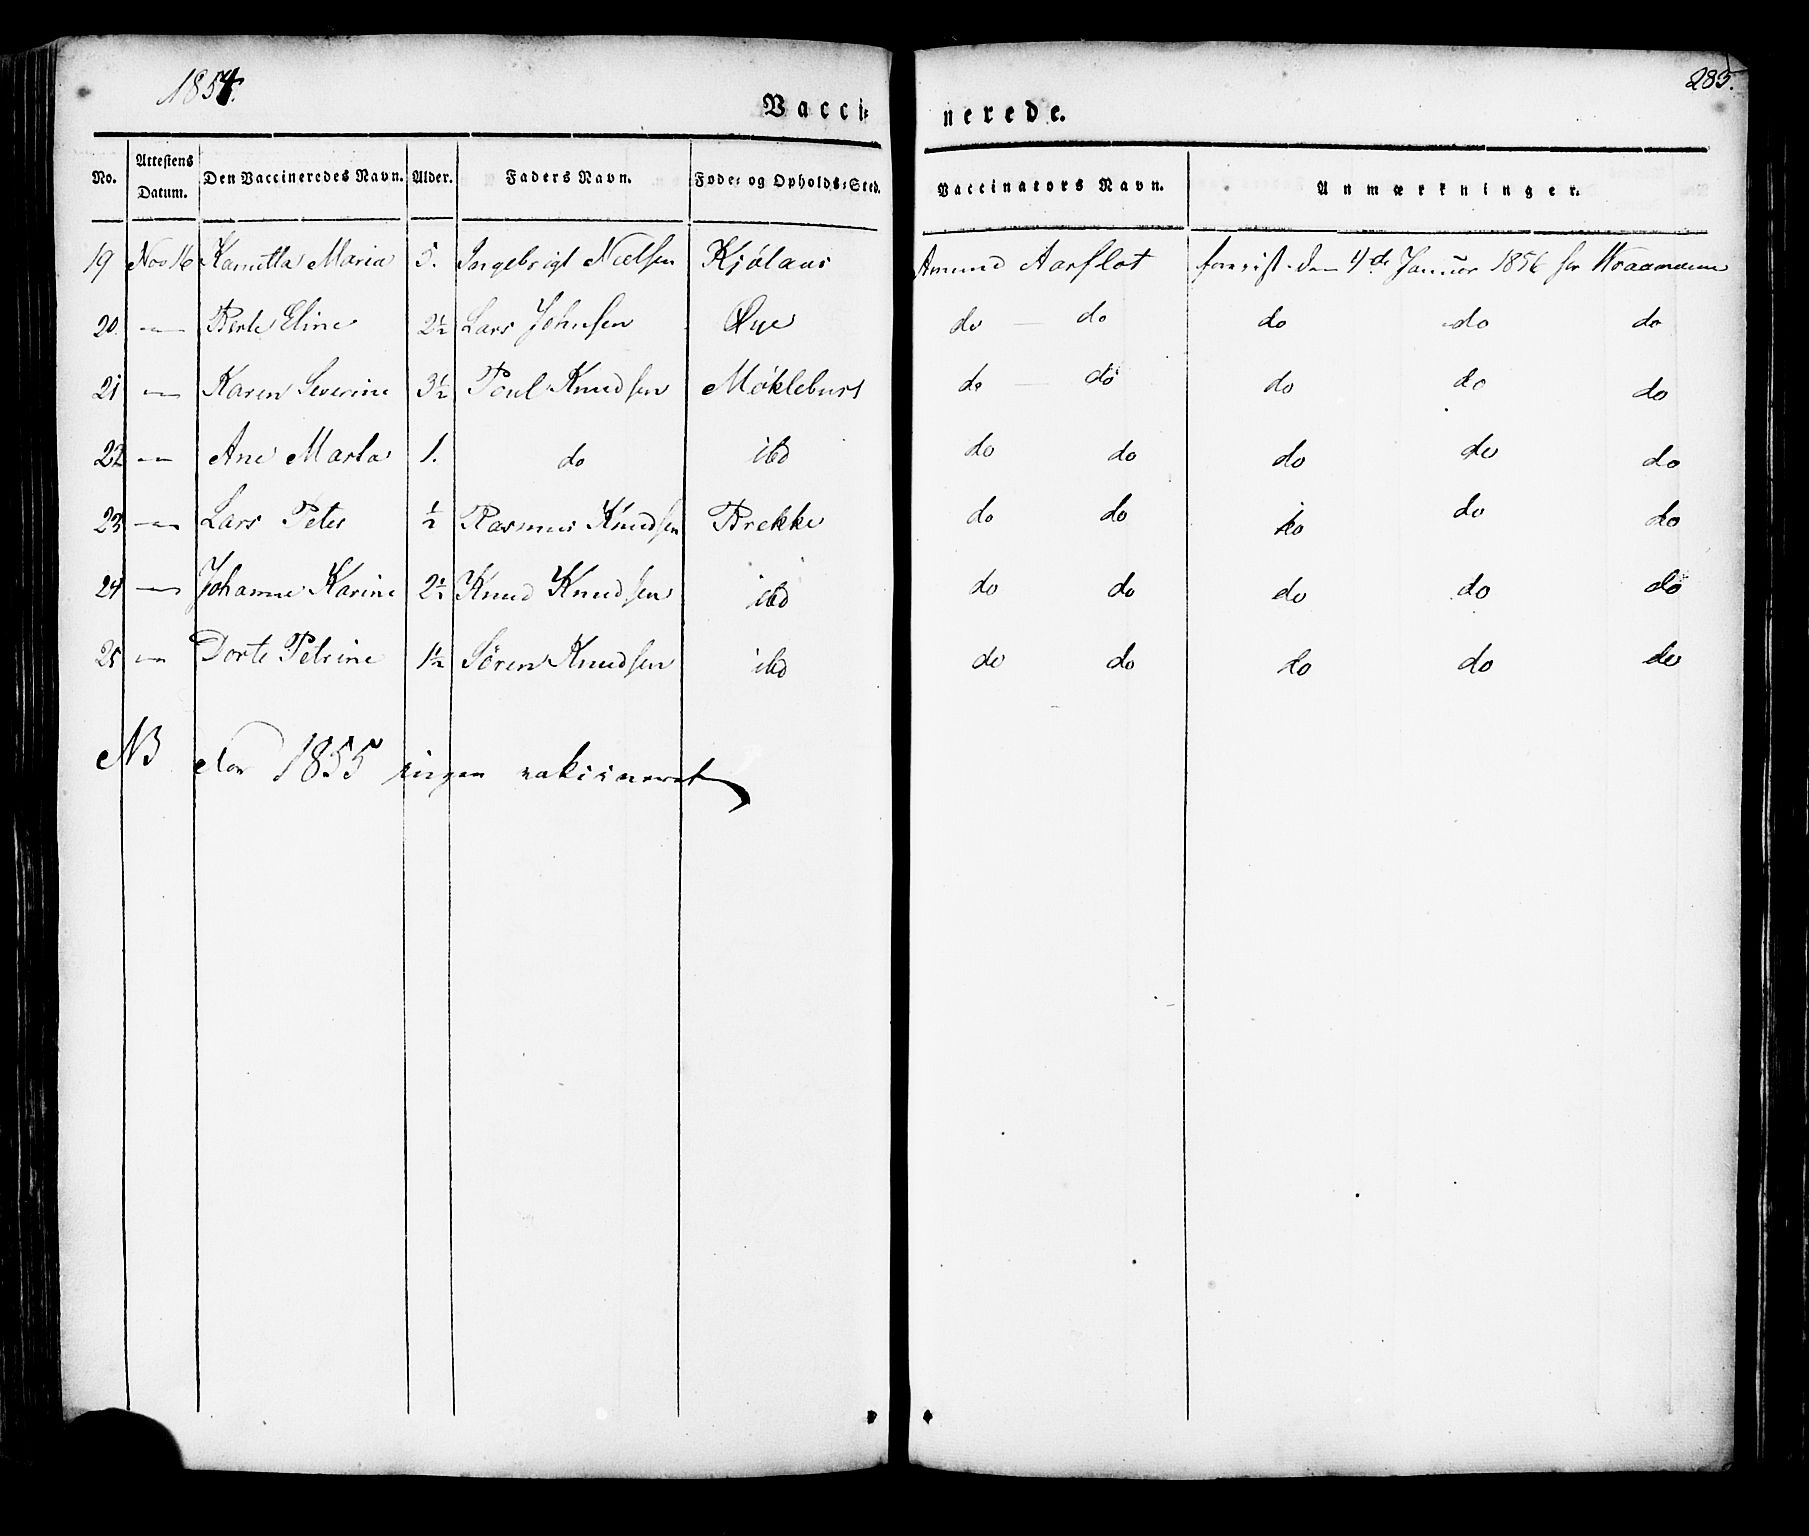 1854.
285.
Vaccinerede.
No. Attestens Datum. Den Vaccineredes Navn. Alder. Faders Navn. Føde- og Opholds-Sted. Vaccinators Navn. Anmærkninger.
19 Nov 16 Kamilla Maria 5. Ingebrigt Nielsen Kjölaas Amund Aarflot forevist den 4de Januar 1856 for
20. — Berte Eline 2½ Lars Johnsen Øye do — do do do do
21 — Karen Severine 3½ Poul Knudsen Møklebust do — do do do do
22 — Ane Marta 1. do ibd do do do do do
23 — Lars Peter ½ Rasmus Knudsen Brekke do do do do do
24 — Johanne Karine 2½ Knud Knudsen ibd do do do do do
25 — Dorte Petrine 1½ Sören Knudsen ibd do do do do do
NB for 1855 ingen vakcineret